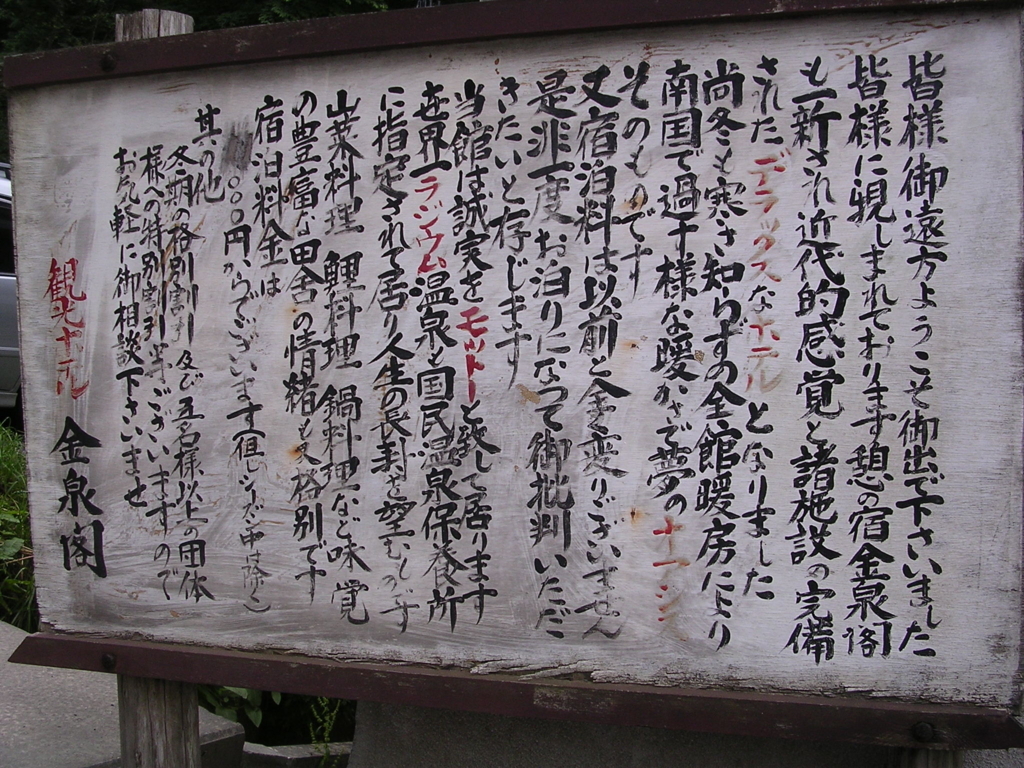 皆様御遠方ようこそ御出で下さいました
皆様に親しまれております憩の宿金泉閣
も一新され近代的感覚と諸施設の完備
されたデラックスなホテルとなりました
尚冬も寒さ知らずの全館暖房により
南国で過す様な暖かさで夢のオアシス
そのものです
又宿泊料は以前と全変りございません
是非一度お泊りになつて御批判いただ
きたいと存じます
当館は誠実をモットーと致して居ります
世界一ラジウム温泉と国民温泉保養所
に指定されて居り人生の長寿を望むしかです
山菜料理 鯉料理 鍋料理など味覚
の豊富な田舎の情緒も又格別です
宿泊料金は
〇〇円からでございます(但しシーズン中は除く)
其の他
冬期の格別割引 及び 五名様以上の団体
様への特別割引等ございますので
お気軽に御相談下さいませ
観光ホテル 金泉閣